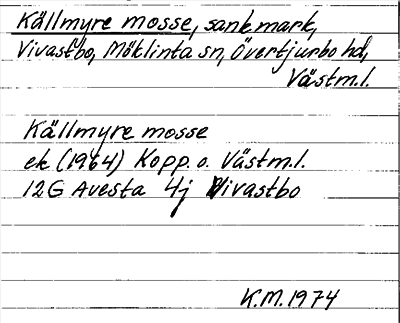 Källmyre mosse, sankmark,
Vivastbo, Möklinta sn, Övertjurbo hd,
Västm.l.
Källmyre mosse
ek (1964) Kopp. o. Västm.l.
12G Avesta 4j Vivastbo
K.M. 1974